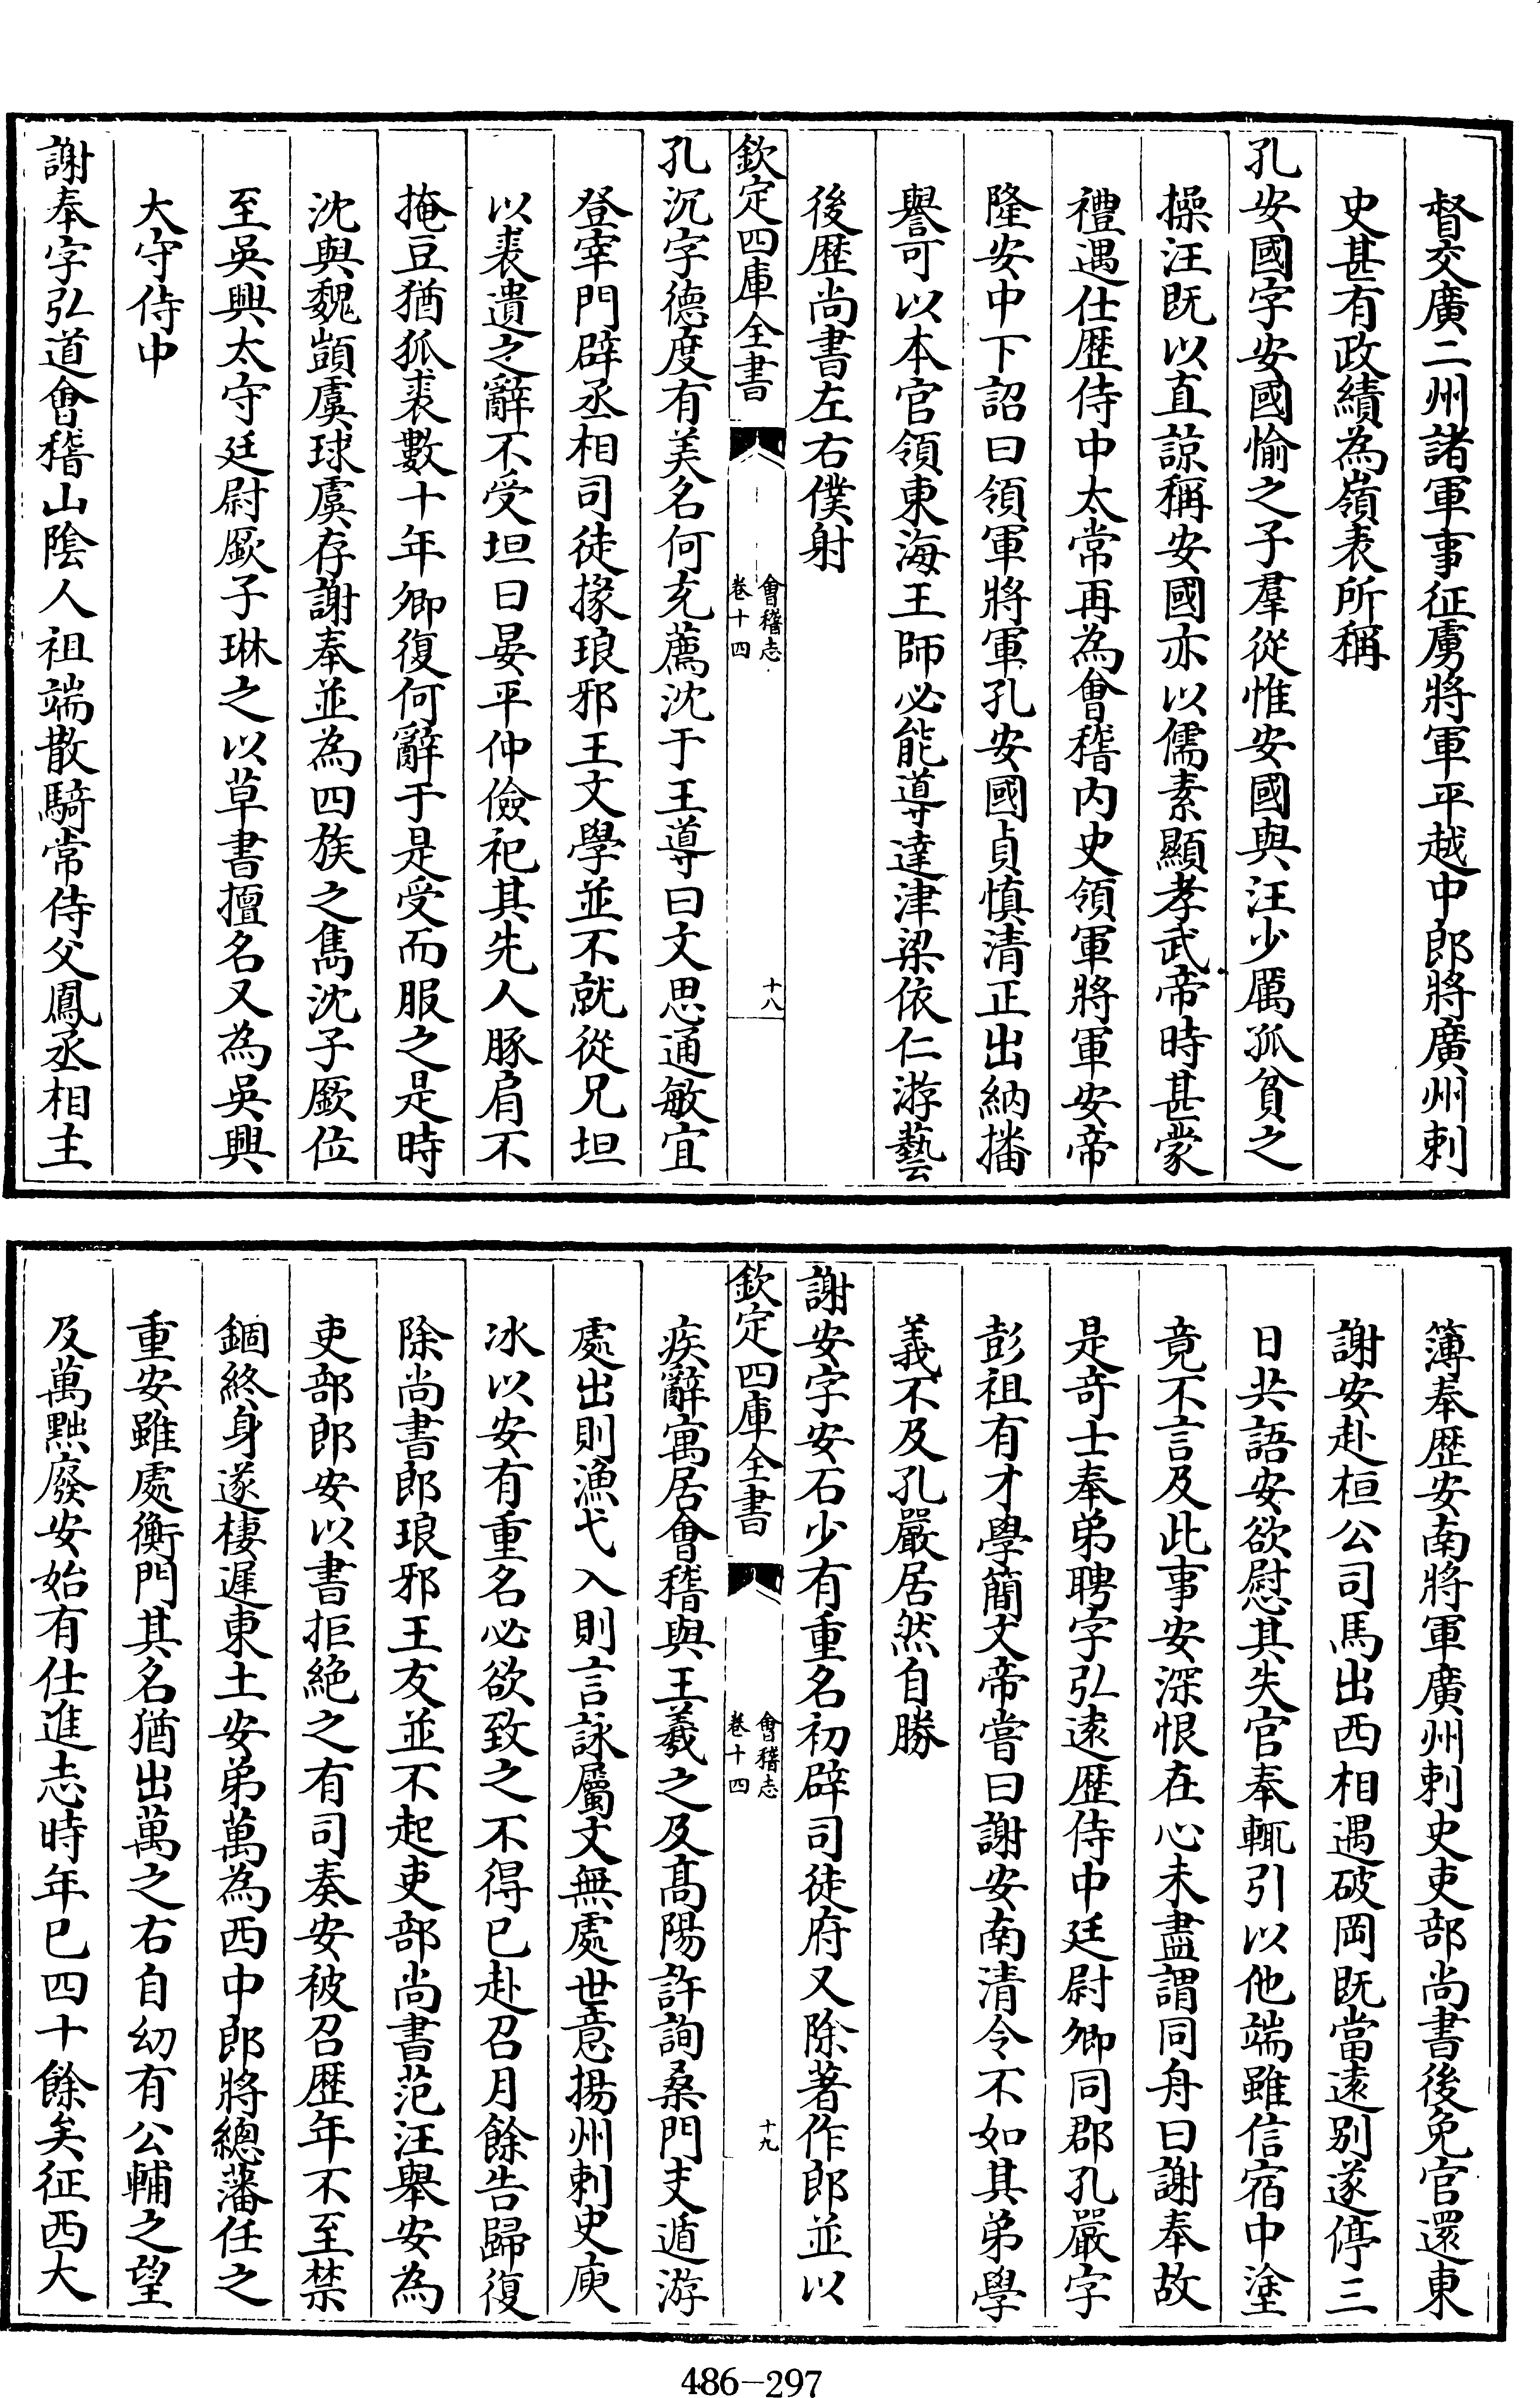 督交廣二州諸軍事征虜將軍平越中郎將廣州刺
史甚有政績為嶺表所稱
孔安國字安國愉之子羣從惟安國與汪少厲孤貧之
操汪既以直諒稱安國亦以儒素顯孝武帝時甚蒙
禮遇仕歴侍中太常再為會稽内史領軍將軍安帝
隆安中下詔曰領軍將軍孔安國貞慎清正出納播
譽可以本官領東海王師必能導達津梁依仁游藝
後歴尚書左右僕射
欽定四庫全書
會稽志
卷十四
十八
孔沉字德度有美名何充薦沈于王導曰文思通敏宜
登宰門辟丞相司徒掾琅邪王文學並不就從兄坦
以裘遺之辭不受坦曰晏平仲儉祀其先人豚肩不
掩豆猶狐裘數十年卿復何辭于是受而服之是時
沈與魏顗虞球虞存謝奉並為四族之雋沈子厥位
至吳興太守廷尉厥子琳之以草書擅名又為吳興
大守侍中
謝奉字弘道會稽山隂人祖端散騎常侍父鳳丞相主
簿奉歴安南將軍廣州刺史吏部尚書後免官還東
謝安赴桓公司馬出西相遇破岡既當遠别遂停三
日共語安欲慰其失官奉輒引以他端雖信宿中塗
竟不言及此事安深恨在心未盡謂同舟曰謝奉故
是竒士奉弟聘字弘逺歴侍中廷尉卿同郡孔嚴字
彭祖有才學簡文帝嘗曰謝安南清令不如其弟學
義不及孔嚴居然自勝
謝安字安石少有重名初辟司徒府又除著作郎並以
欽定四庫全書
會稽志
卷十四
十九
疾辭寓居會稽與王羲之及髙陽許詢桑門支遁游
處出則漁弋入則言詠屬文無處世意揚州刺史庾
冰以安有重名必欲致之不得已赴召月餘告歸復
除尚書郎琅邪王友並不起吏部尚書范汪舉安為
吏部郎安以書拒絶之有司奏安被召歴年不至禁
錮終身遂棲遲東土安弟萬為西中郎將總藩任之
重安雖處衡門其名猶出萬之右自幼有公輔之望
及萬黜廢安始有仕進志時年已四十餘矣征西大
486-297